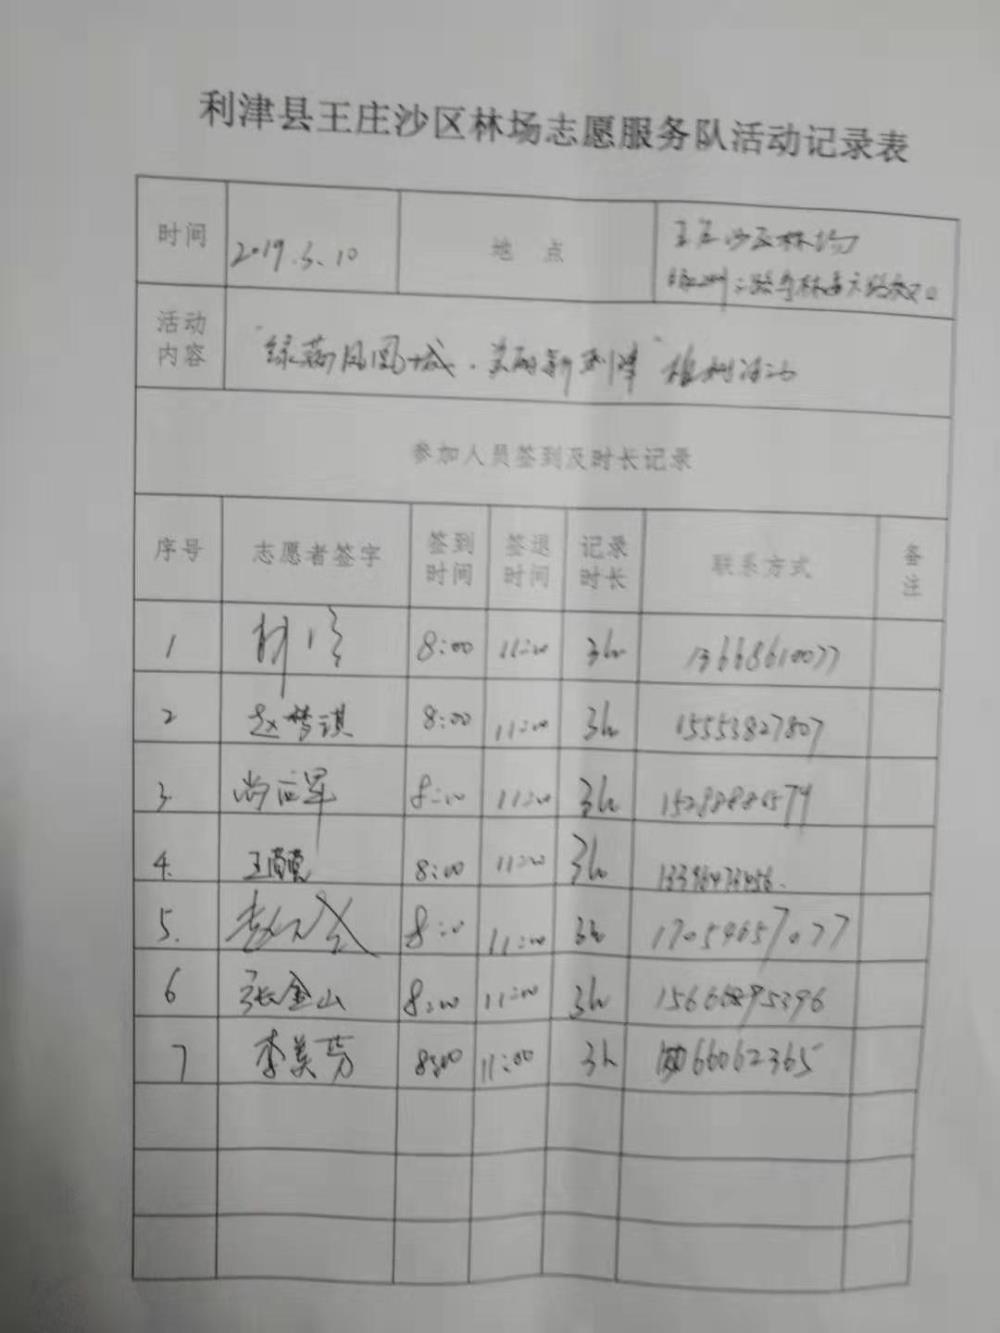 利津县王庄沙区林场志愿服务队活动记录表
时间 2019.3.10 地点 王庄沙区林场
二路与林 路交叉口
活动内容 "绿荫凤凰城·美丽新利津"植树活动
参加人员签到及时长记录
序号 志愿者签字 签到时间 签退时间 记录时长 联系方式 备注
1 8:00 11:00 3h 13668610077
2 赵梦琪 8:00 11:00 3h 15553827807
3. 尚 军 8:00 11:00 3h
4. 王 8:00 11:00 3h
5. 8:00 11:00 3h 17054657077
6 张金山 8:00 11:00 3h
7 李美芳 8:00 11:00 3h 66062365